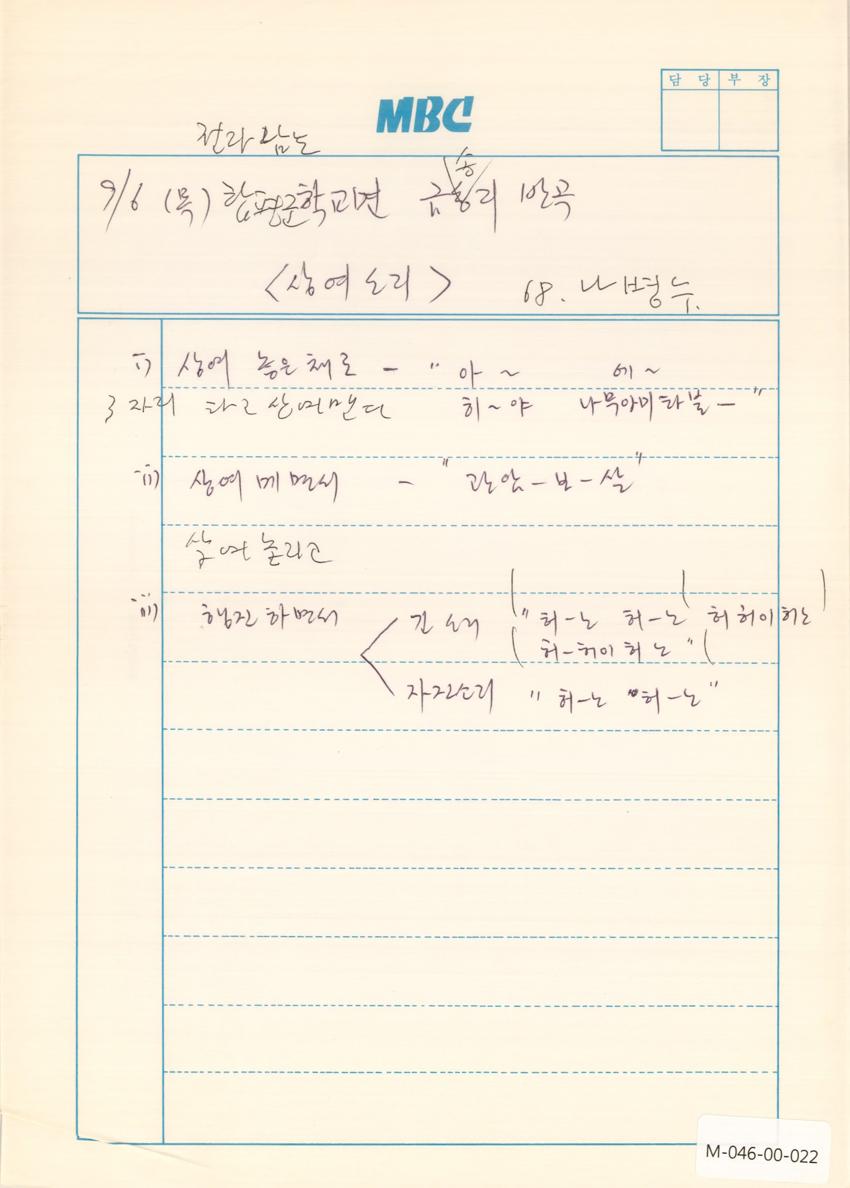 담 당 부 장
MBC
전라남도
9/6 (목) 함평군 학교면 금송리 반곡
<상여소리> 68. 나병수.
i) 상여 놓은 채로 - " 아 ~ 에 ~
3자리 하고 상여맨다 히 ~ 야 나무아미타불 - "
ii) 상여 메면서 - " 관암 - 보 - 살 "
상여 놀리고
iii) 행진하면서 긴 소리 ( " 허 - 노 허 - 노 ( 허 허이 허노 )
( 허 - 허이 허 노 " (
자진소리 " 허 - 노 허 - 노 "
M-046-00-022